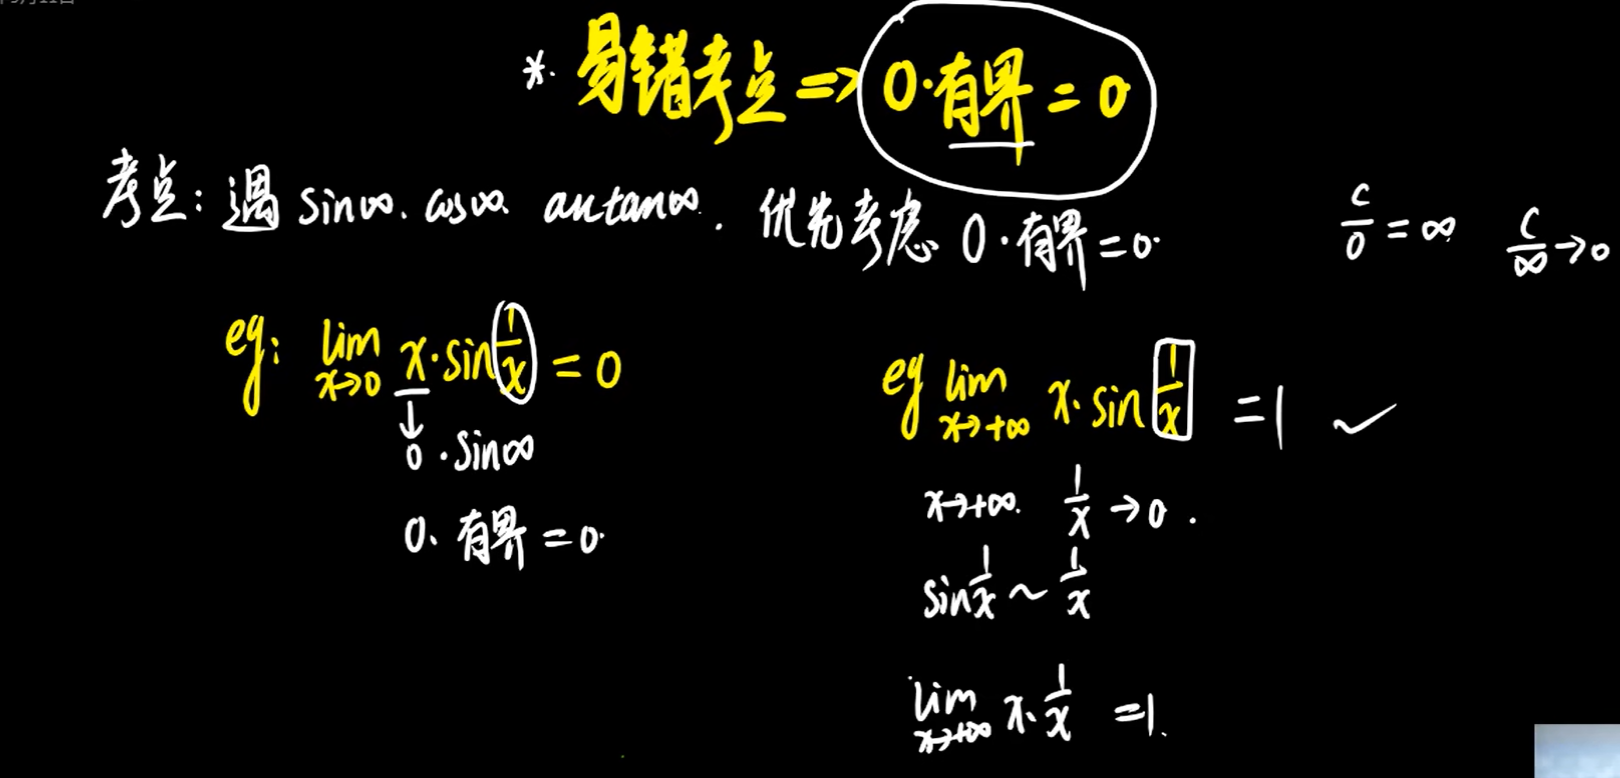 *. 易错考点 => 0·有界 = 0
考点: 遇 sin∞. cos∞. arctan∞. 优先考虑 0·有界=0.
c/0 = ∞ c/∞ →0
eg: lim x→0 x·sin 1/x = 0
0·sin∞
0. 有界 = 0.
eg lim x→+∞ x·sin 1/x = 1 ✓
x→+∞. 1/x → 0.
sin 1/x ~ 1/x
lim x→+∞ x· 1/x = 1.